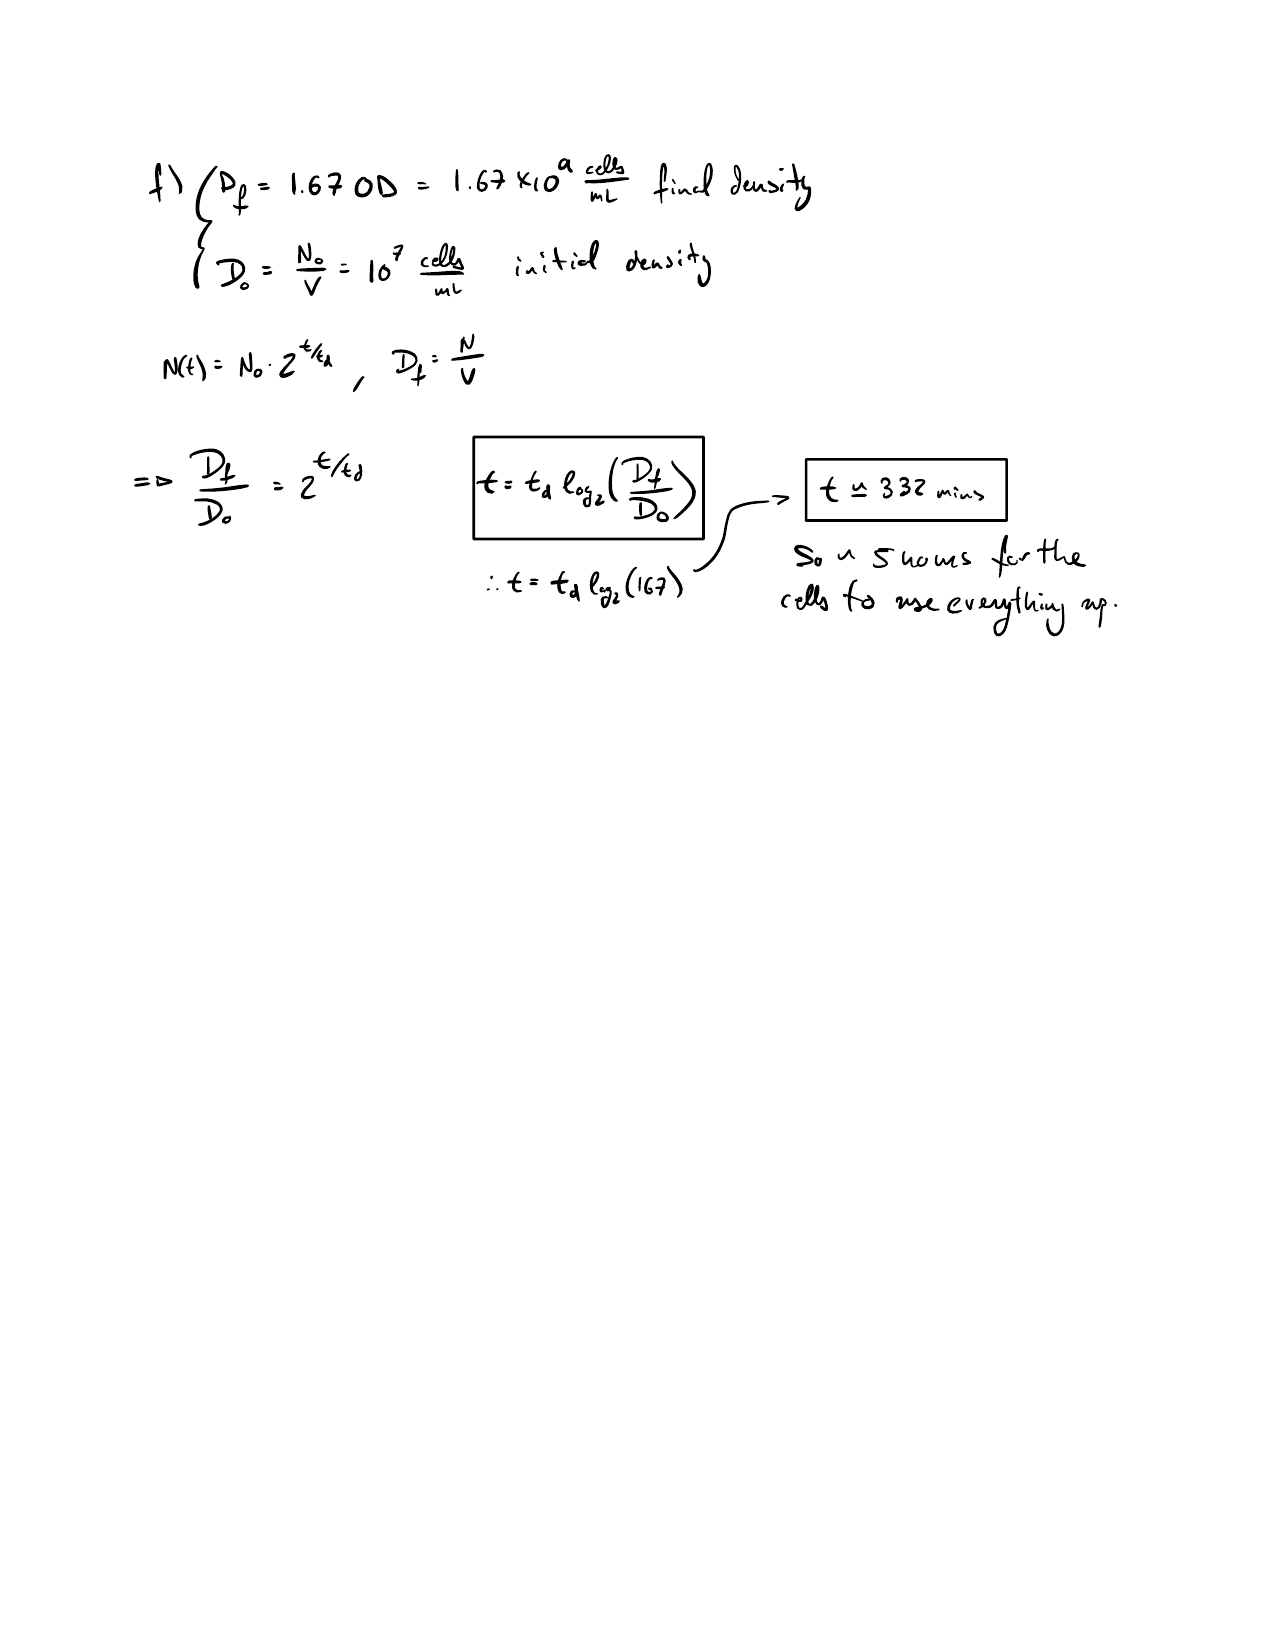 f) D_f = 1.67 OD = 1.67 × 10^9 cells/mL final density
D_0 = N_0/V = 10^7 cells/mL initial density
N(t) = N_0 · 2^{t/t_d} , D_f = N/V
=> D_f/D_0 = 2^{t/t_d}
t = t_d log_2(D_f/D_0)
∴ t = t_d log_2(167)
t ≃ 332 mins
So ~ 5 hours for the
cells to use everything up.